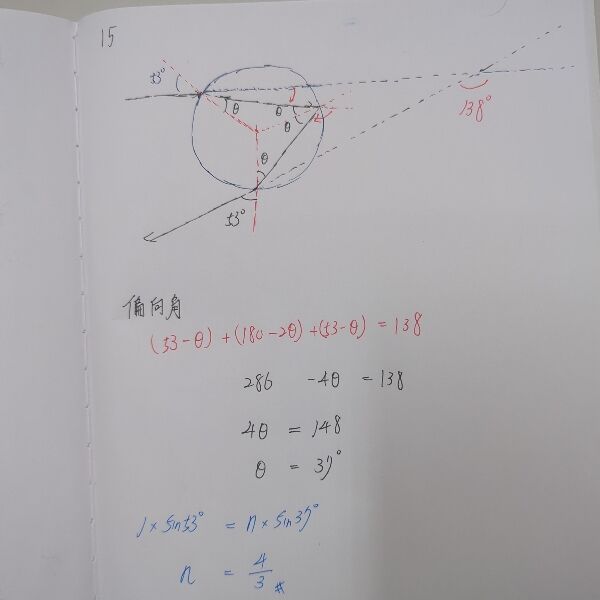 15
53°
θ
θ
θ
138°
θ
53°
偏向角
(53-θ)+(180-2θ)+(53-θ)=138
286 -4θ =138
4θ = 148
θ = 37°
1×sin53° = n×sin37°
n = 4/3 #